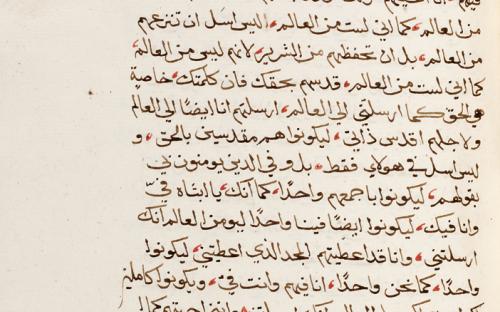 من العالم، كما اني لست من العالم، وليس اسل ان تنزعهم
من العالم، بل ان تحفظهم من الشرير، لانهم ليس من العالم،
كما اني لست من العالم، قدسهم بحقك فان كلمتك، خاصة
هي الحق كما ارسلتني الي العالم، ارسلتهم انا ايضًا الي العالم
ولاجلهم اقدس ذاتي، ليكونوا هم مقدسين بالحق، و
ليس اسل في هولاي فقط، بل وفي الدين يومنون بي
بقولهم، ليكونوا باجمعهم واحدًا، كما آنك، يا ابتاه فيّ
وانا فيك، ليكونوا ايضًا فينا واحدًا ليومن العالم آنك
ارسلتني، وانا قد اعطيتهم المجد الذي اعطيتني ليكونوا
واحدًا، كما نحن واحدًا، انا فيهم وانت فيّ، ويكونوا كاملين